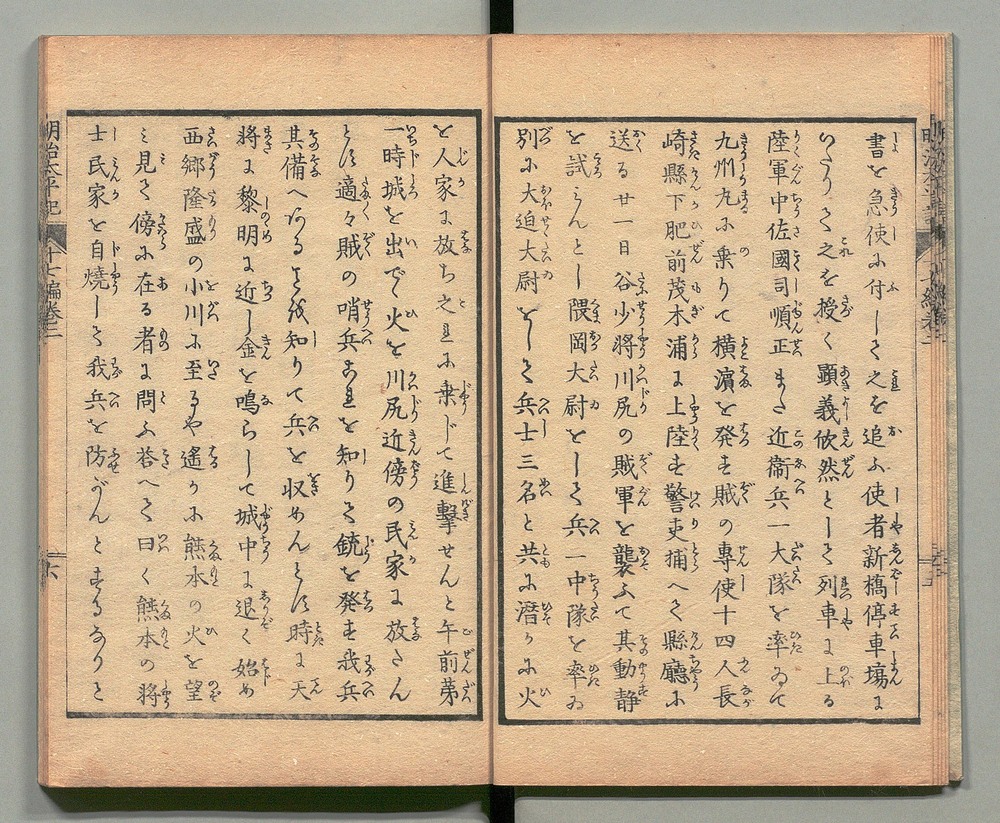 書を急使に付して之を追ふ使者新橋停車塲に
いたりて之を授く顕義欣然として列車に上る
陸軍中佐國司順正また近衞兵一大隊を率ゐて
九州丸に乗りて横濵を発す賊の專使十四人長
崎縣下肥前茂木浦に上陸す警吏捕へて縣廳に
送る廿一日谷少将川尻の賊軍を襲ふて其動静
を試らんとし隈岡大尉をして兵一中隊を率ゐ
別に大迫大尉をして兵士三名と共に潜かに火
を人家に放ち之れに乗じて進撃せんと午前第
一時城を出で火を川尻近傍の民家に放さん
とす適々賊の哨兵これを知りて銃を発す我兵
其備へあるを知りて兵を収めんとす時に天
将に黎明に近し金を鳴らして城中に退く始め
西郷隆盛の小川に至るや遙かに熊本の火を望
み見て傍に在る者に問ふ荅へて曰く熊本の将
士民家を自燒して我兵を防がんとするなりと
明治太平記
十七編巻二
六